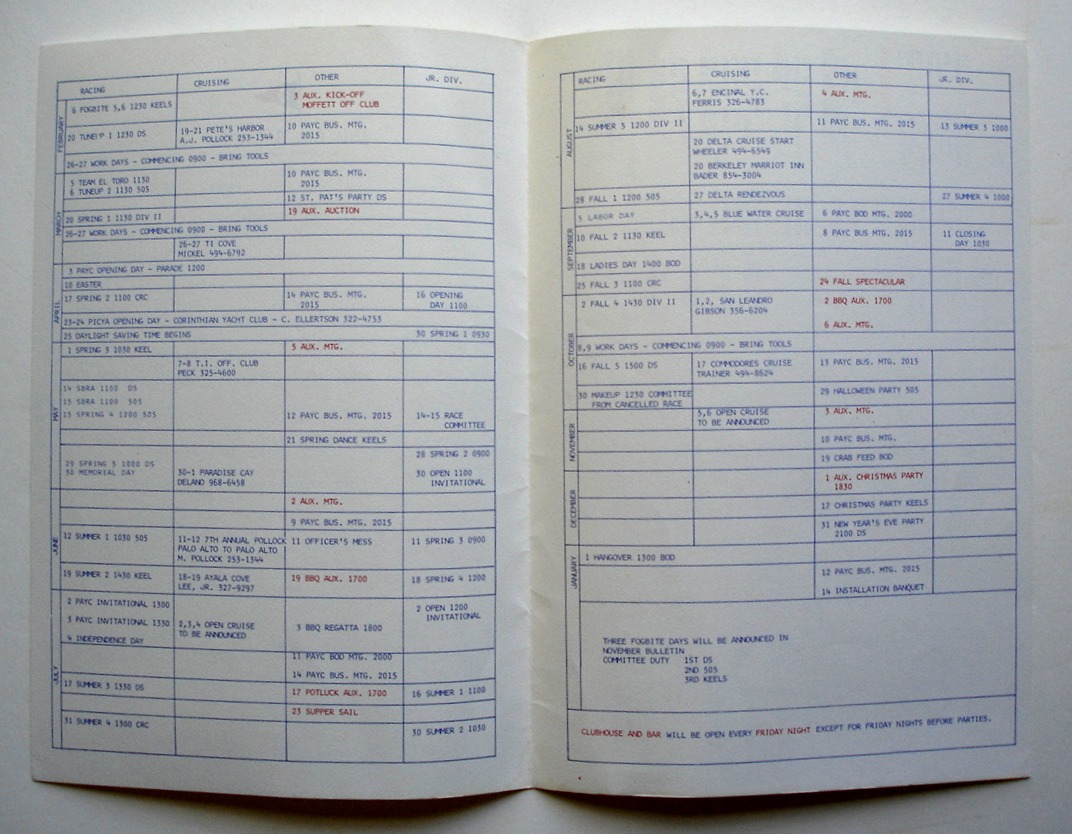 RACING CRUISING OTHER JR. DIV.
FEBRUARY
6 FOGBITE 5,6 1230 KEELS
3 AUX. KICK-OFF
MOFFETT OFF CLUB
20 TUNEUP 1 1230 DS
19-21 PETE'S HARBOR
A.J. POLLOCK 253-1344
10 PAYC BUS. MTG.
2015
26-27 WORK DAYS - COMMENCING 0900 - BRING TOOLS
MARCH
5 TEAM EL TORO 1130
6 TUNEUP 2 1130 505
10 PAYC BUS. MTG.
2015
12 ST. PAT'S PARTY DS
20 SPRING 1 1130 DIV II
19 AUX. AUCTION
26-27 WORK DAYS - COMMENCING 0900 - BRING TOOLS
26-27 TI COVE
MICKEL 494-6792
APRIL
3 PAYC OPENING DAY - PARADE 1200
10 EASTER
17 SPRING 2 1100 CRC
14 PAYC BUS. MTG.
2015
16 OPENING
DAY 1100
23-24 PICYA OPENING DAY - CORINTHIAN YACHT CLUB - C. ELLERTSON 322-4753
25 DAYLIGHT SAVING TIME BEGINS
30 SPRING 1 0930
MAY
1 SPRING 3 1030 KEEL
5 AUX. MTG.
7-8 T.I. OFF. CLUB
PECK 325-4600
14 SBRA 1100 DS
15 SBRA 1100 505
15 SPRING 4 1200 505
12 PAYC BUS. MTG. 2015
14-15 RACE
COMMITTEE
21 SPRING DANCE KEELS
28 SPRING 2 0900
29 SPRING 5 1000 DS
30 MEMORIAL DAY
30-1 PARADISE CAY
DELANO 968-6458
30 OPEN 1100
INVITATIONAL
JUNE
2 AUX. MTG.
9 PAYC BUS. MTG. 2015
12 SUMMER 1 1030 505
11-12 7TH ANNUAL POLLOCK
PALO ALTO TO PALO ALTO
M. POLLOCK 253-1344
11 OFFICER'S MESS
11 SPRING 3 0900
19 SUMMER 2 1430 KEEL
18-19 AYALA COVE
LEE, JR. 327-9297
19 BBQ AUX. 1700
18 SPRING 4 1200
JULY
2 PAYC INVITATIONAL 1300
2 OPEN 1200
INVITATIONAL
3 PAYC INVITATIONAL 1330
2,3,4 OPEN CRUISE
TO BE ANNOUNCED
3 BBQ REGATTA 1800
4 INDEPENDENCE DAY
11 PAYC BOD MTG. 2000
14 PAYC BUS. MTG. 2015
17 SUMMER 3 1330 DS
17 POTLUCK AUX. 1700
16 SUMMER 1 1100
23 SUPPER SAIL
31 SUMMER 4 1300 CRC
30 SUMMER 2 1030
RACING CRUISING OTHER JR. DIV.
AUGUST
6,7 ENCINAL Y.C.
FERRIS 326-4783
4 AUX. MTG.
14 SUMMER 5 1200 DIV II
11 PAYC BUS. MTG. 2015
13 SUMMER 3 1000
20 DELTA CRUISE START
WHEELER 494-6549
20 BERKELEY MARRIOT INN
BADER 854-3004
28 FALL 1 1200 505
27 DELTA RENDEZVOUS
27 SUMMER 4 1000
SEPTEMBER
5 LABOR DAY
3,4,5 BLUE WATER CRUISE
6 PAYC BOD MTG. 2000
10 FALL 2 1130 KEEL
8 PAYC BUS MTG. 2015
11 CLOSING
DAY 1030
18 LADIES DAY 1400 BOD
25 FALL 3 1100 CRC
24 FALL SPECTACULAR
OCTOBER
2 FALL 4 1430 DIV II
1,2, SAN LEANDRO
GIBSON 356-6204
2 BBQ AUX. 1700
6 AUX. MTG.
8,9 WORK DAYS - COMMENCING 0900 - BRING TOOLS
16 FALL 5 1500 DS
17 COMMODORES CRUISE
TRAINER 494-8624
13 PAYC BUS. MTG. 2015
30 MAKEUP 1230 COMMITTEE
FROM CANCELLED RACE
29 HALLOWEEN PARTY 505
NOVEMBER
5,6 OPEN CRUISE
TO BE ANNOUNCED
3 AUX. MTG.
10 PAYC BUS. MTG.
19 CRAB FEED BOD
DECEMBER
1 AUX. CHRISTMAS PARTY
1830
17 CHRISTMAS PARTY KEELS
31 NEW YEAR'S EVE PARTY
2100 DS
JANUARY
1 HANGOVER 1300 BOD
12 PAYC BUS. MTG. 2015
14 INSTALLATION BANQUET
THREE FOGBITE DAYS WILL BE ANNOUNCED IN
NOVEMBER BULLETIN
COMMITTEE DUTY 1ST DS
2ND 505
3RD KEELS
CLUBHOUSE AND BAR WILL BE OPEN EVERY FRIDAY NIGHT EXCEPT FOR FRIDAY NIGHTS BEFORE PARTIES.